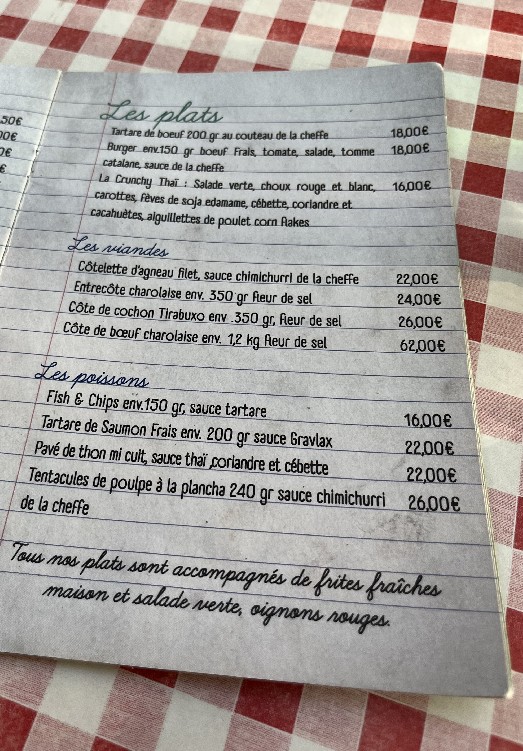 50€
00€
0€
€
Les plats
Tartare de boeuf 200 gr au couteau de la cheffe 18,00€
Burger env.150 gr boeuf Frais, tomate, salade, tomme 18,00€
catalane, sauce de la cheffe
La Crunchy Thaï : Salade verte, choux rouge et blanc, 16,00€
carottes, fèves de soja edamame, cébette, coriandre et
cacahuètes, aiguillettes de poulet corn flakes
Les viandes
Côtelette d'agneau filet, sauce chimichurri de la cheffe 22,00€
Entrecôte charolaise env. 350 gr fleur de sel 24,00€
Côte de cochon Tirabuxo env .350 gr, fleur de sel 26,00€
Côte de bœuf charolaise env. 1,2 kg fleur de sel 62,00€
Les poissons
Fish & Chips env.150 gr, sauce tartare 16,00€
Tartare de Saumon Frais env. 200 gr sauce Gravlax 22,00€
Pavé de thon mi cuit, sauce thaï ,coriandre et cébette 22,00€
Tentacules de poulpe à la plancha 240 gr sauce chimichurri 26,00€
de la cheffe
Tous nos plats sont accompagnés de frites fraîches
maison et salade verte, oignons rouges.